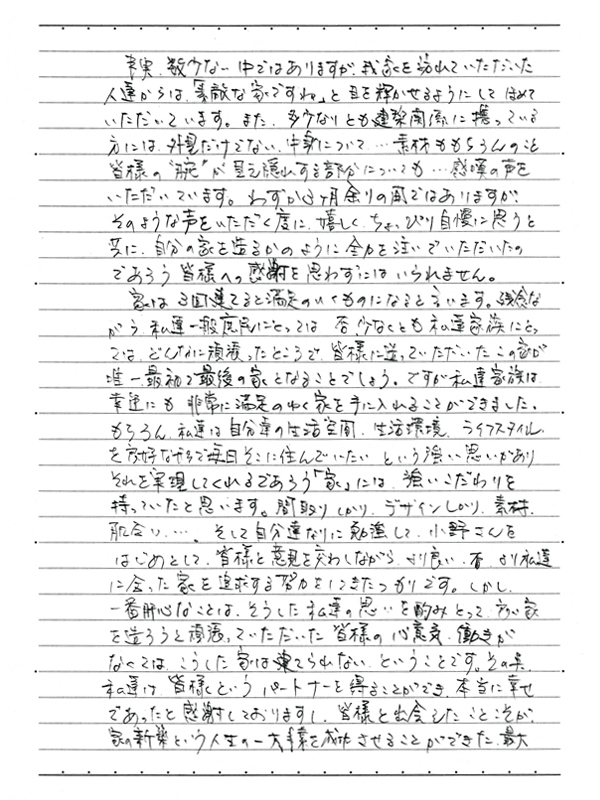 事実、数少ない中ではありますが、我家を訪れていただいた
人達からは、「素敵な家ですね」と目を輝かせるようにしてほめて
いただいています。また、多少なりとも建築関係に携っている
方には、外見だけでない、中身について…素材ももちろんのこと
皆様の〝腕〟が見え隠れする部分についても…感嘆の声を
いただいています。わずか3ヶ月余りの間ではありますが、
そのような声をいただく度に、嬉しく、ちょっぴり自慢に思うと
共に、自分の家を造るかのように全力を注いでいただいたの
であろう皆様への感謝を思わずにはいられません。
家は3回建てると満足のいくものになると言います。残念な
がら、私達一般庶民にとっては 否 少なくとも私達家族にとっ
ては、どんなに頑張ったところで、皆様に造っていただいたこの家が
唯一最初で最後の家となることでしょう。ですが私達家族は、
幸運にも非常に満足のゆく家を手に入れることができました。
もちろん、私達は自分達の生活空間、生活環境、ライフスタイル
を 毎日そこに住んでいたい という強い思いがあり
それを実現してくれるであろう「家」には、強いこだわりを
持っていたと思います。間取りしかり、デザインしかり、素材、
肌合い…。そして自分達なりに勉強して、小野さんを
はじめとして、皆様と意見を交わしながら、より良い、否、より私達
に合った家を追求する努力をしてきたつもりです。しかし、
一番肝心なことは、そうした私達の思いを酌みとって、良い家
を造ろうと頑張っていただいた皆様の心意気、働きが
なくては、こうした家は建てられない、ということです。その点、
私達は、皆様というパートナーを得ることができ、本当に幸せ
であったと感謝しておりますし、皆様と出会えたことこそが、
家の新築という人生の一大事業を成功させることができた、最大